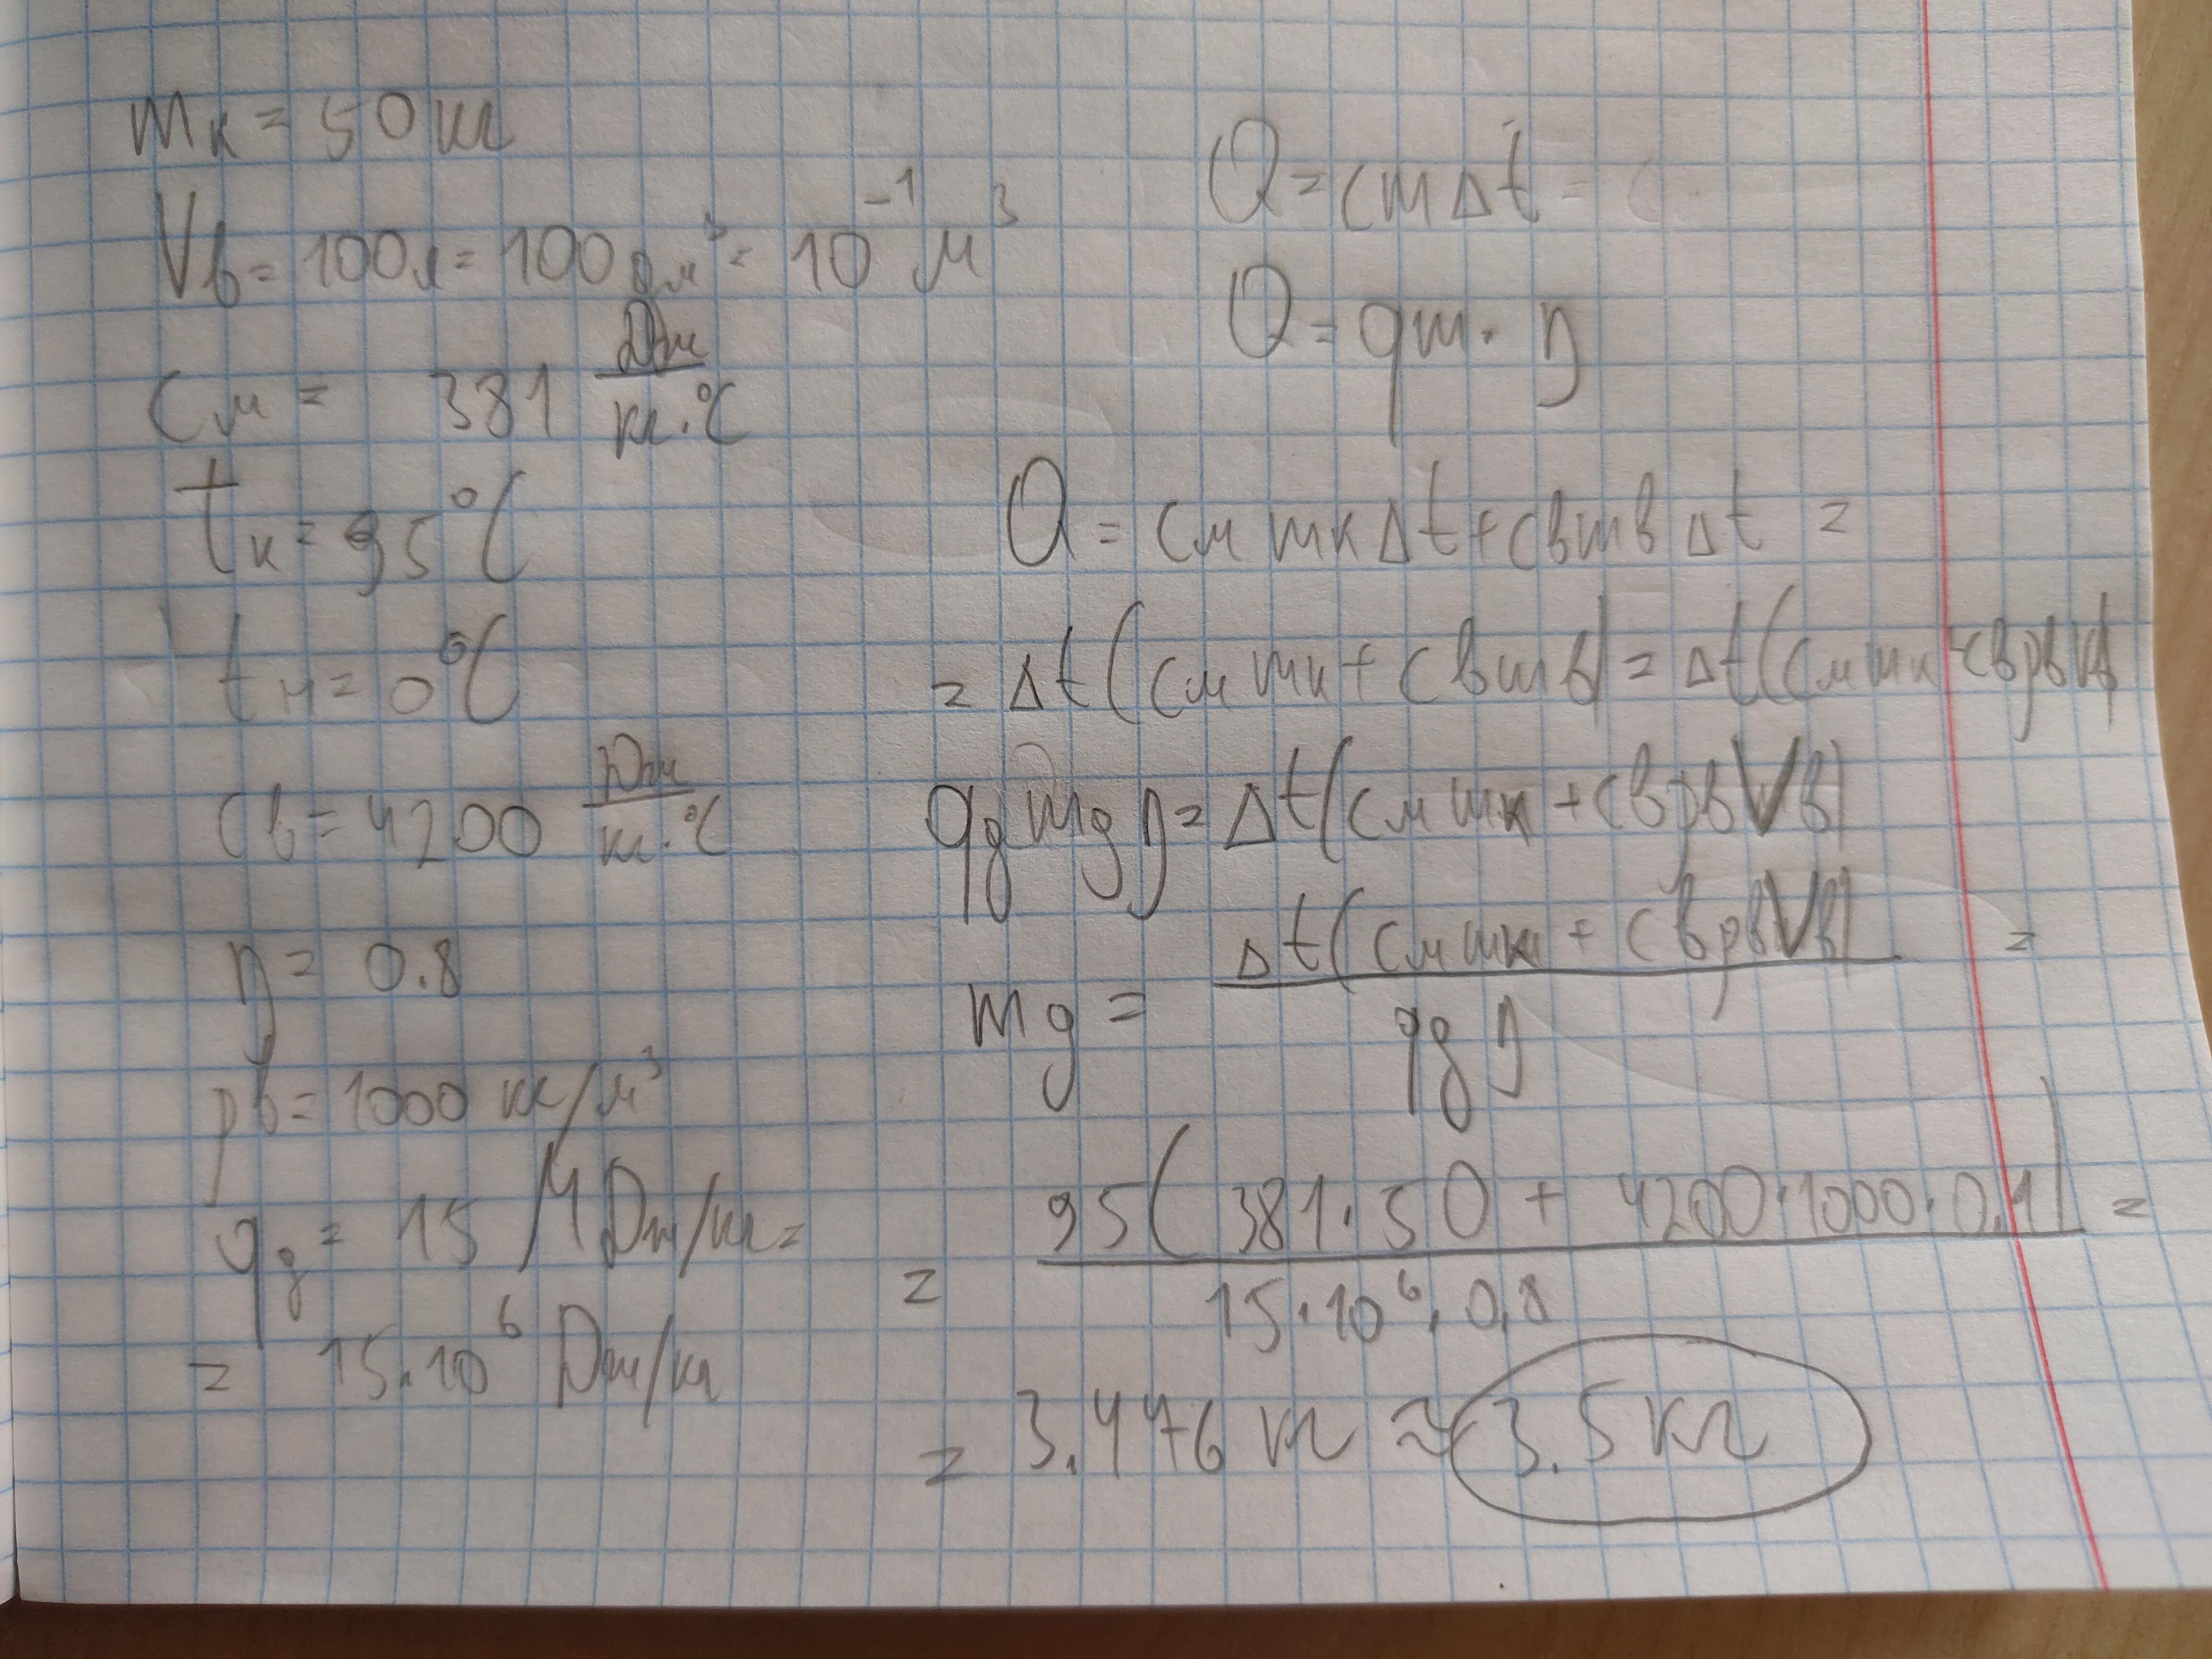 mк = 50 кг
Vв = 100л = 100 дм³ = 10⁻¹ м³
cм = 381 Дж/кг·°C
tк = 95°C
tн = 0°C
cв = 4200 Дж/кг·°C
η = 0.8
ρв = 1000 кг/м³
qg = 15 МДж/кг =
= 15·10⁶ Дж/кг
Q = cmΔt =
Q = qm·η
Q = cм mк Δt + cв mв Δt =
= Δt(cм mк + cв mв) = Δt(cм mк + cв ρв Vв)
qg mg η = Δt(cм mк + cв ρв Vв)
mg = Δt(cм mк + cв ρв Vв) / qg η =
= 95(381·50 + 4200·1000·0,1) / 15·10⁶·0,8 =
= 3.476 кг ≈ 3.5 кг